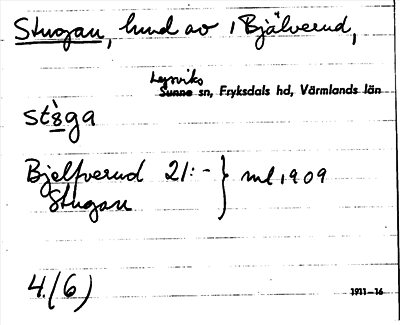 Stugan, hmd av 1 Bjälverud,
Lysviks
Sunne sn, Fryksdals hd, Värmlands län
stɜ̀ga
Bjelfverud 21:- } ml 1909
Stugan
4.(6)
1911-16